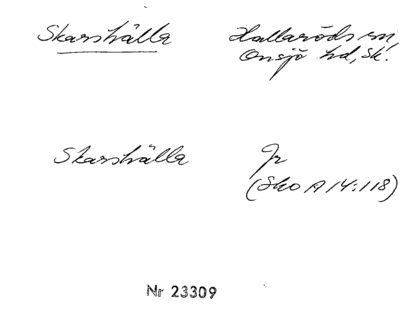 Skarshälla Hallaröds sn
Onsjö hd, Sk.
Skarshälla Jr
(Sko A 14:118)
Nr 23309